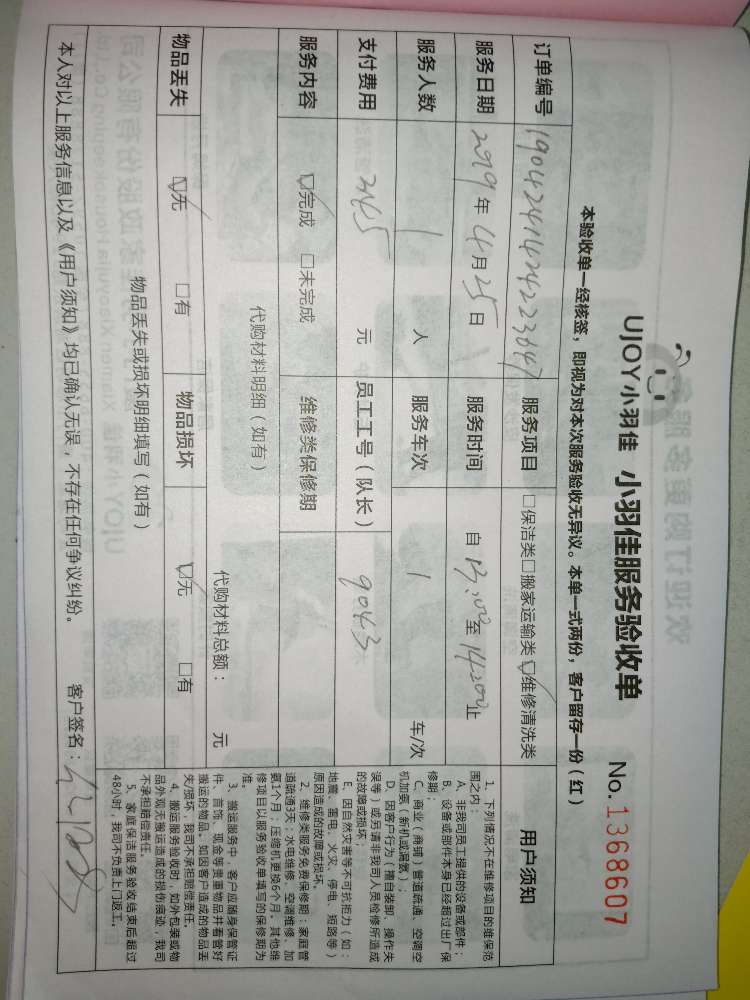 UJOY小羽佳 小羽佳服务验收单 No.1368607
本验收单一经核签，即视为对本次服务验收无异议。本单一式两份，客户留存一份（红）
订单编号 19042414242223647 服务项目 □保洁类□搬家运输类☑维修清洗类
服务日期 2019年4月25日 服务时间 自13:00至14:00止
服务人数 1 人 服务车次 1 车/次
支付费用 345 元 员工工号（队长） 9043
服务内容 ☑完成 □未完成 维修类保修期
代购材料明细（如有） 代购材料总额： 元
物品丢失 ☑无 □有 物品损坏 ☑无 □有
物品丢失或损坏明细填写（如有）
本人对以上服务信息以及《用户须知》均已确认无误，不存在任何争议纠纷。 客户签名：
用户须知
1、下列情况不在维修项目的维保范
围之内：
A、非我司员工提供的设备或部件；
B、设备或部件本身已经超过出厂保
修期；
C、商业（商铺）管道疏通、空调空
机加氨（新机或漏氨）；
D、因客户行为（擅自装卸、操作失
误等）或另请非我司人员检修所造成
的故障或损坏；
E、因自然灾害等不可抗拒力（如：
地震、雷电、火灾、停电、短路等）
原因造成的故障或损坏。
2、维修类服务免费保修期：家庭管
道疏通3天；水电维修、空调维修、加
氨1个月；压缩机更换6个月。其他维
修项目以服务验收单填写的保修期为
准。
3、搬运服务中，客户应随身保管证
件、首饰、现金等贵重物品并看管好
搬运的物品。如因客户造成的物品丢
失/损坏，我司不承担赔偿责任。
4、搬运服务验收时，如外包装或物
品外观无搬运造成的损伤痕迹，我司
不承担赔偿责任。
5、家庭保洁服务验收结束后超过
48小时，我司不负责上门返工。